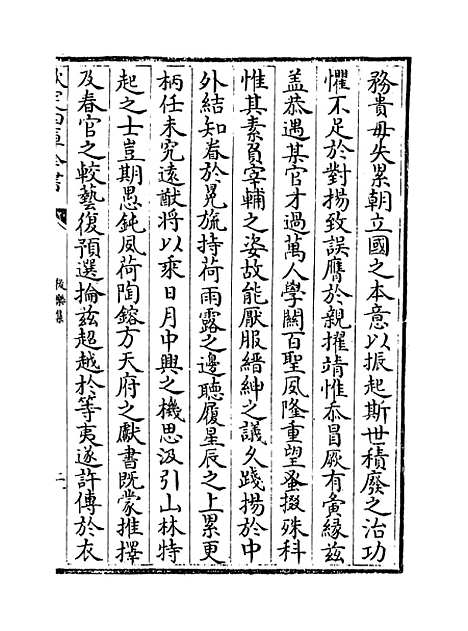 務貴毋失累朝立國之本意以振起斯世積廢之治功
懼不足於對揚致誤膺於親擢靖惟忝冒厥有夤縁兹
盖恭遇某官才過萬人學闗百聖風隆重望蚤掇殊科
惟其素負宰輔之姿故能厭服縉紳之議久踐揚於中
外結知眷於冕旒持荷雨露之邊聽履星辰之上累更
柄任未究遠猷將以乘日月中興之機思汲引山林特
起之士豈期愚鈍夙荷陶鎔方天府之獻書既蒙推擇
及春官之較藝復預選掄兹超越於等夷遂許傳於衣
欽定四庫全書
二